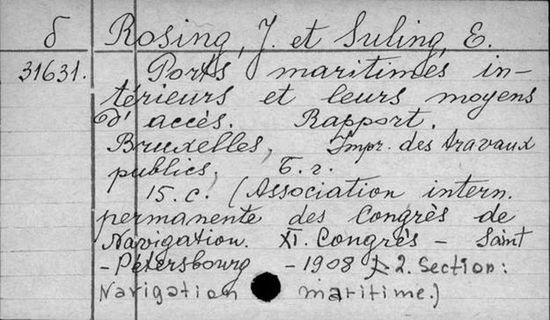 б Rosing, J. et Suling, E.
31631. Ports maritimes in-
térieurs et leurs moyens
d'accès. Rapport.
Bruxelles, Impr. des travaux
publics, Б.г.
15.c. (Association intern.
permanente des Congrès de
Navigation. XI. Congrès - Saint
-Pétersbourg - 1908). 2. Section:
Navigation maritime.)